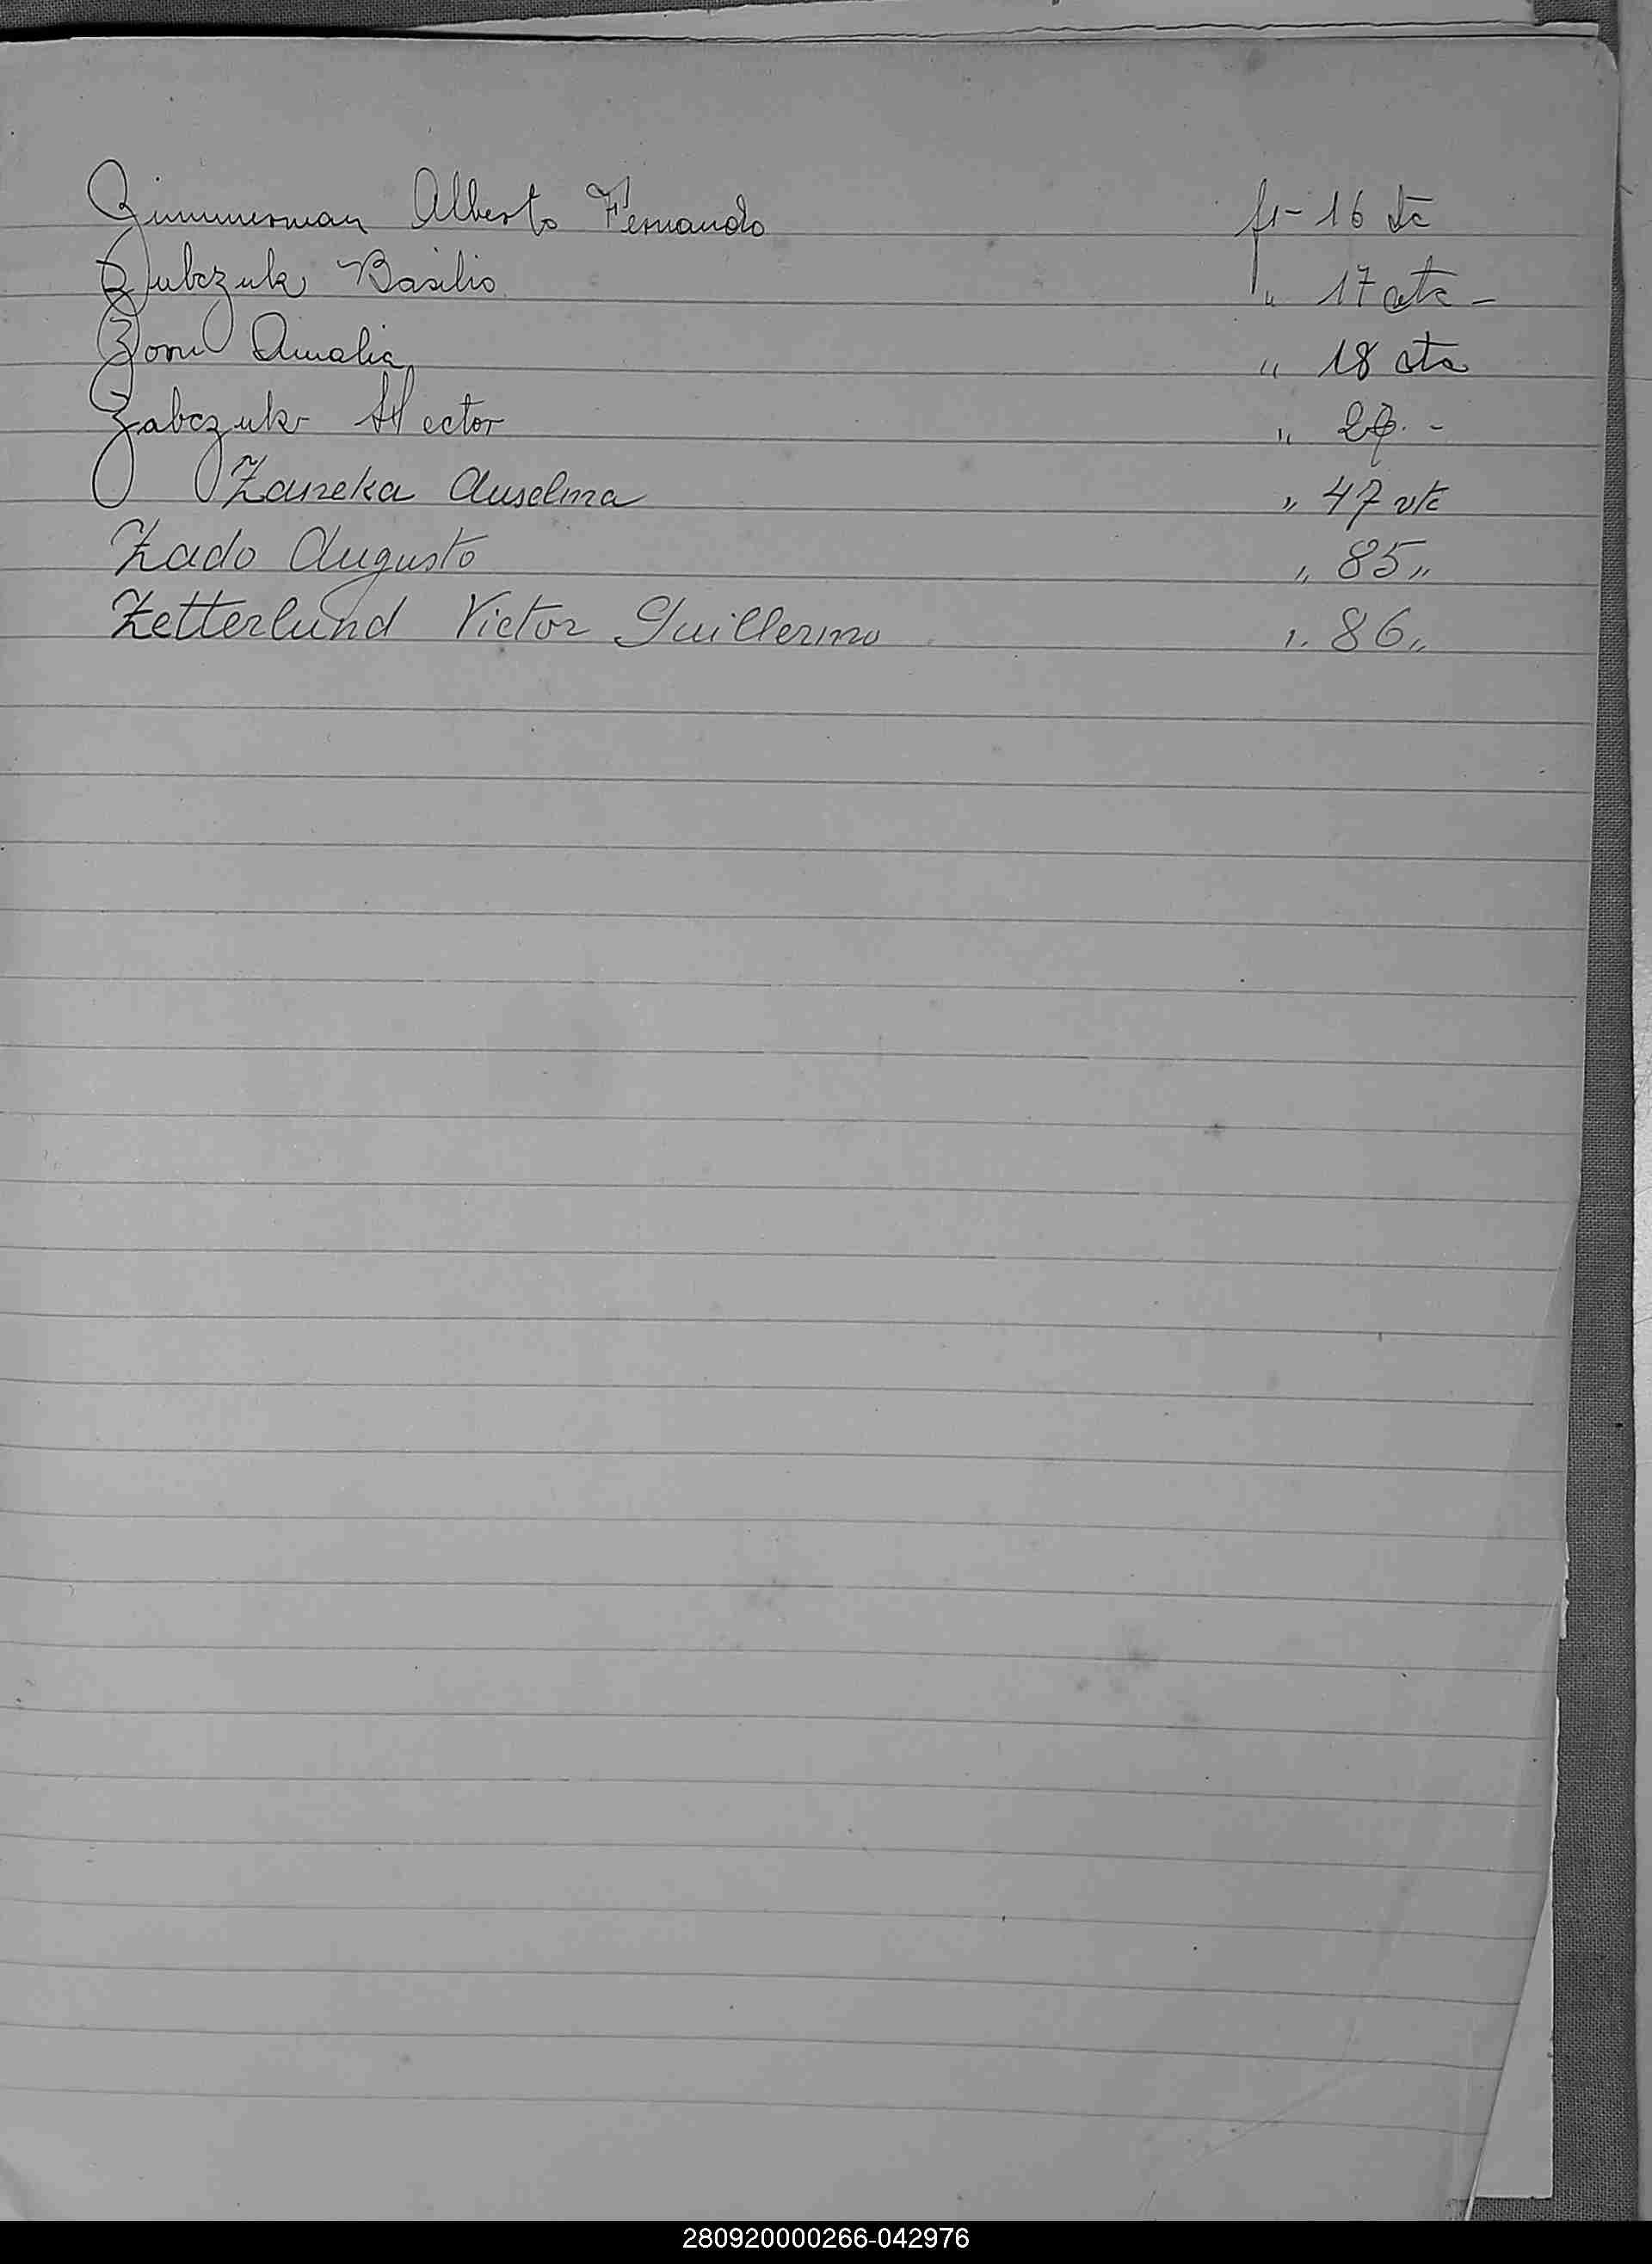 Zimmerman Alberto Fernando fs- 16 vta
Zubczuk Basilio " 17 vta -
Zorn Amalia " 18 vta
Zabczuk Hector " -
Zaneka Anselma " 47 vta
Zado Augusto " 85 "
Zetterlund Victor Guillermo " 86 "
280920000266-042976